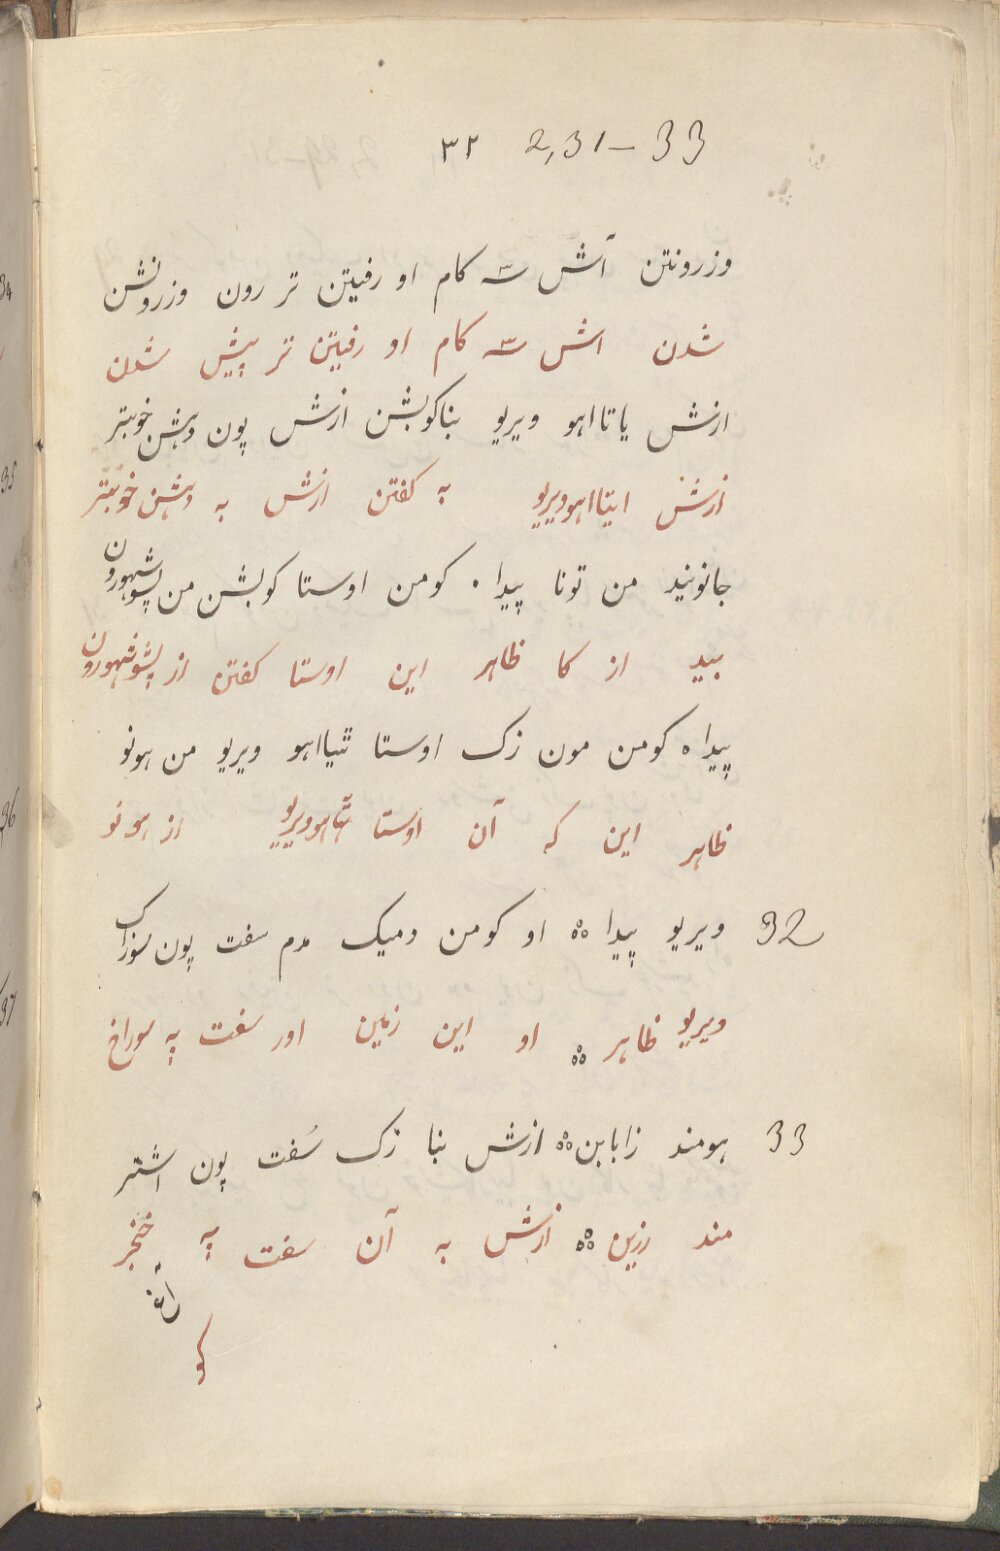 ۳۲ 2,31-33
وزرونتن آش سه کام او رفیتن تر رون وزرونشن
شدن اش سه کام او رفیتن تر پیش شدن
ازش یاتااهو ویریو بناکوبشن ازش پون دهشن خوبتر
ازش ایتااهوویریو به کفتن ازش به دهشن خوبتر
جانونید من تونا پیدا . کومن اوستا کوبشن من
بید از کا ظاهر این اوستا کفتن از
پیدا ه کومن مون زک اوستا ویریو من هونو
ظاهر این که آن اوستا از هونو
32 ویریو پیدا ٥٥ او کومن دمیک مدم سفت پون سوراک
ویریو ظاهر ٥٥ او این زمین اور سفت په سوراخ
33 هومند زابابن ٥٥ ازش بنا زک سُفت پون اشتر
مند زرین ٥٥ ازش به آن سفت په خنجر
کو